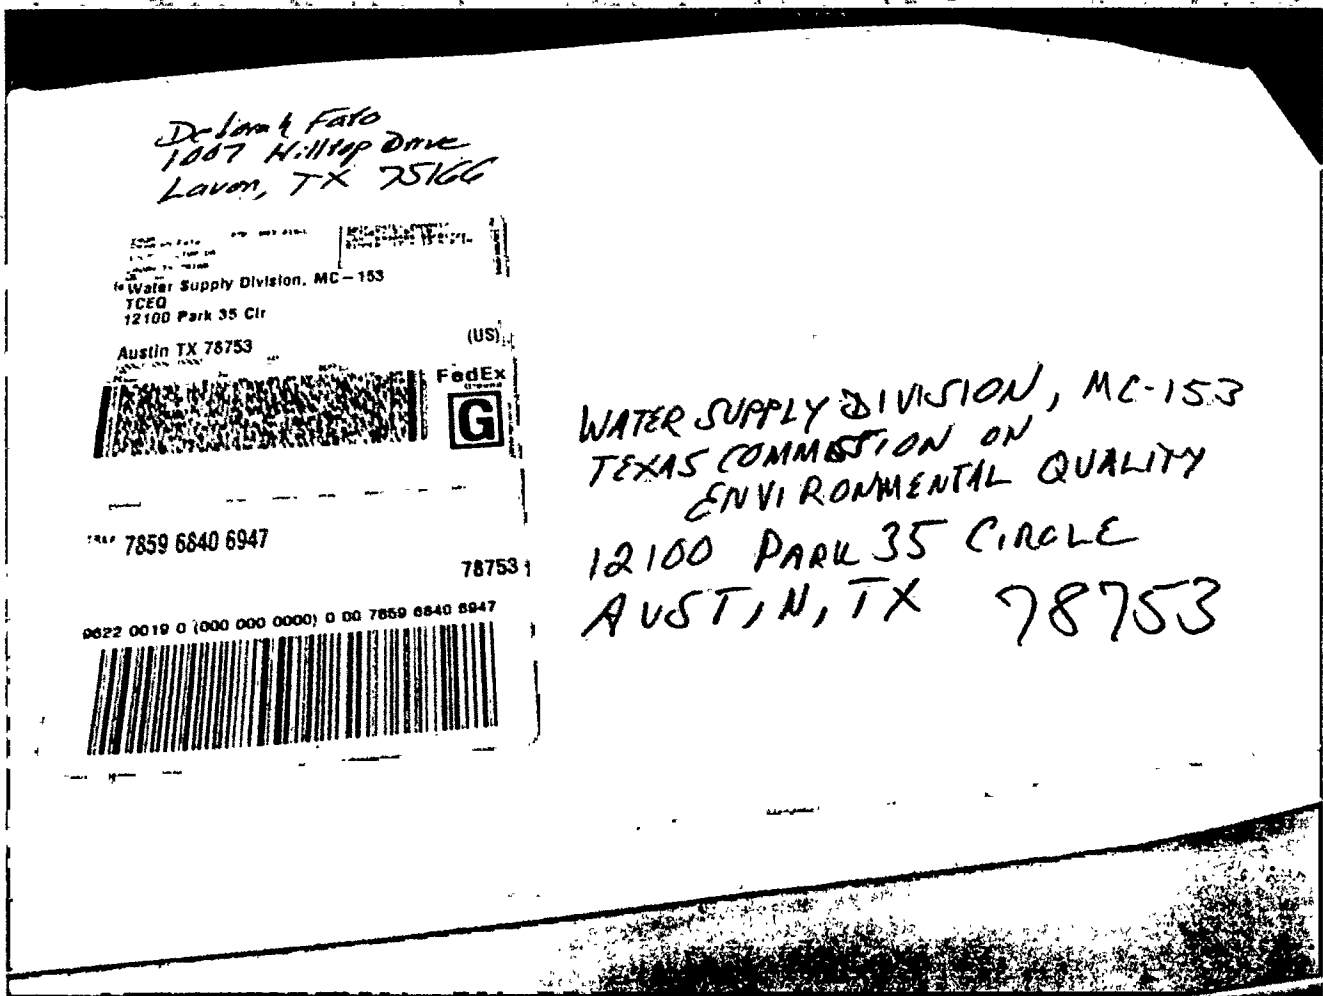 Deborah Fato
1007 Hilltop Drive
Lavon, TX 75166
Water Supply Division, MC-153
TCEQ
12100 Park 35 Cir
Austin TX 78753
(US)
FedEx
Ground
G
TRK# 7859 6840 6947
78753
9622 0019 0 (000 000 0000) 0 00 7859 6840 6947
WATER SUPPLY DIVISION, MC-153
TEXAS COMMISSION ON
ENVIRONMENTAL QUALITY
12100 PARK 35 CIRCLE
AUSTIN, TX 78753